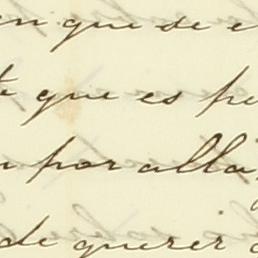 en que se e
que es pe
por alla
de querer